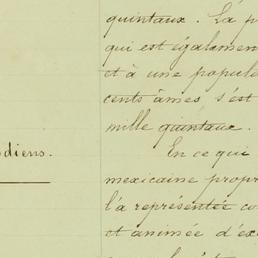 quintaux. La p
qui est égalemen
et à une popula
cents âmes, s'est
mille quintaux.
diens.
En ce qui
mexicaine propr
l'a représentée co
et animée d'ex